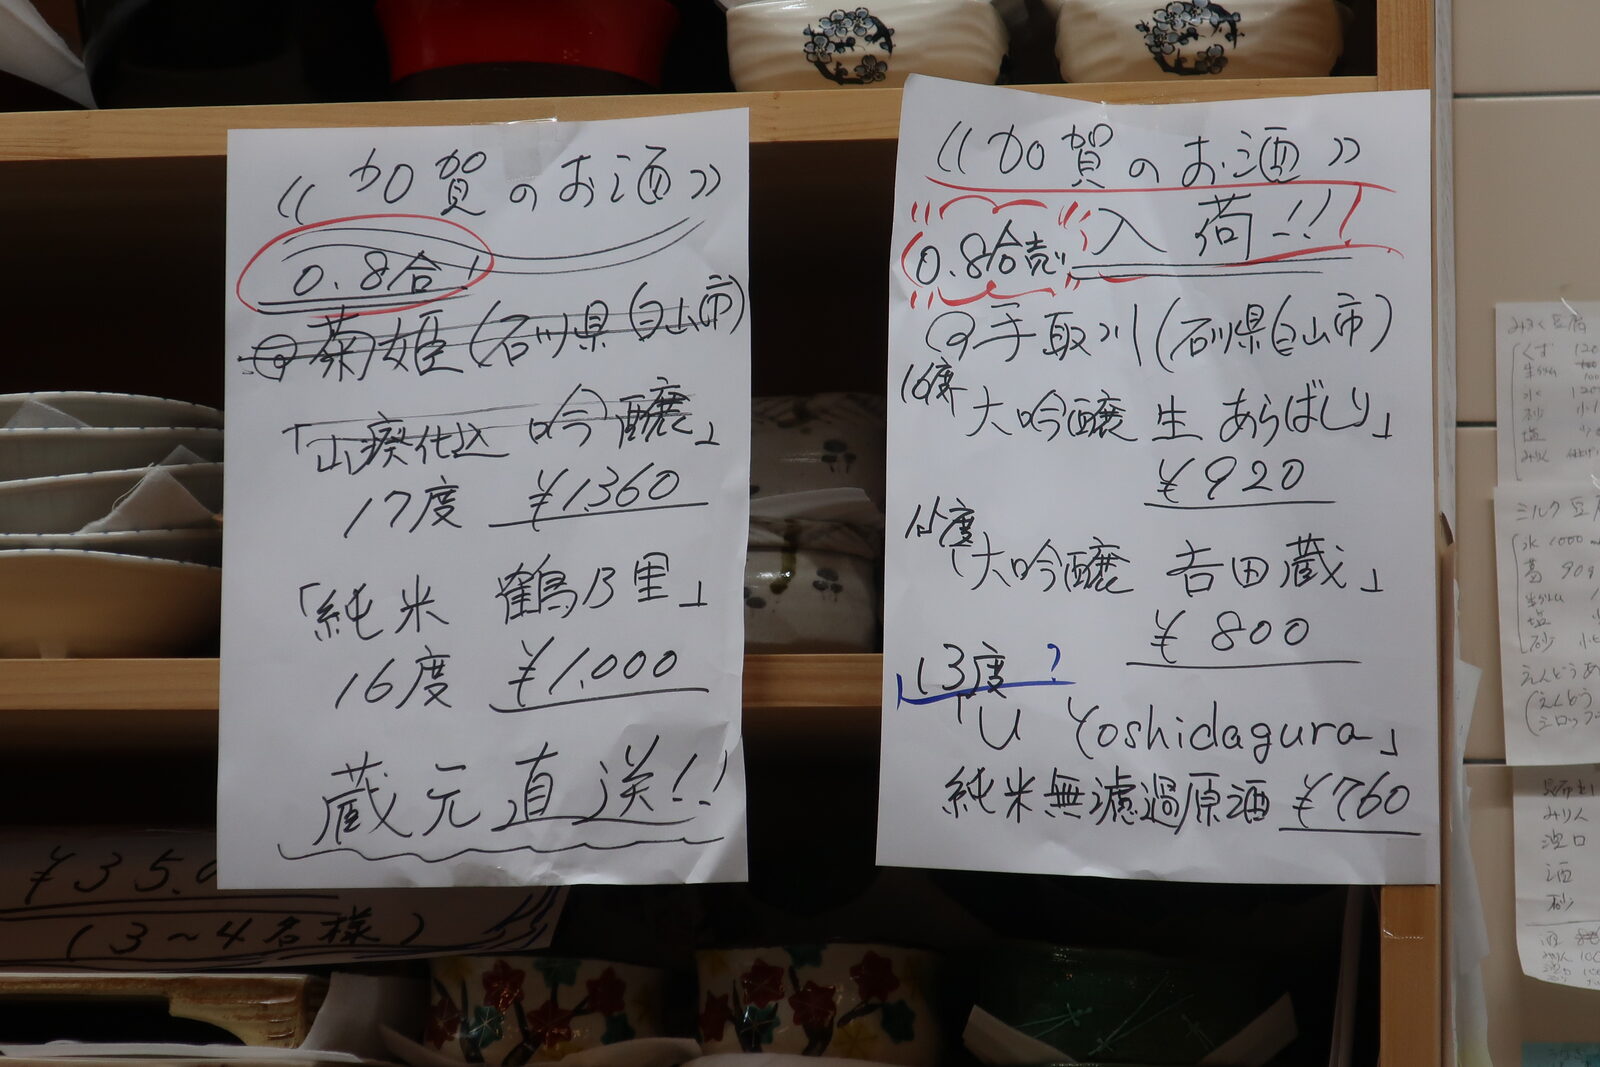 《加賀のお酒》
0.8合!
◎菊姫(石川県白山市)
「山廃仕込 吟醸」
17度 ¥1,360
「純米 鶴乃里」
16度 ¥1,000
蔵元直送!!
《加賀のお酒》
0.8合売り 入荷!!
◎手取川(石川県白山市)
16度
大吟醸 生 あらばしり」
¥920
度
「大吟醸 吉田蔵」
¥800
13度?
「U Yoshidagura」
純米無濾過原酒 ¥760
¥35,0
(3~4名様)
みるく豆腐
くず 120
生クリーム
水 120
砂
塩
みりん
ミルク豆腐
水 1000
葛 90g
生クリーム
塩
砂
えんどうあ
(えんどう
シロップ
みりん
濃口
酒
砂
酒
みりん 100